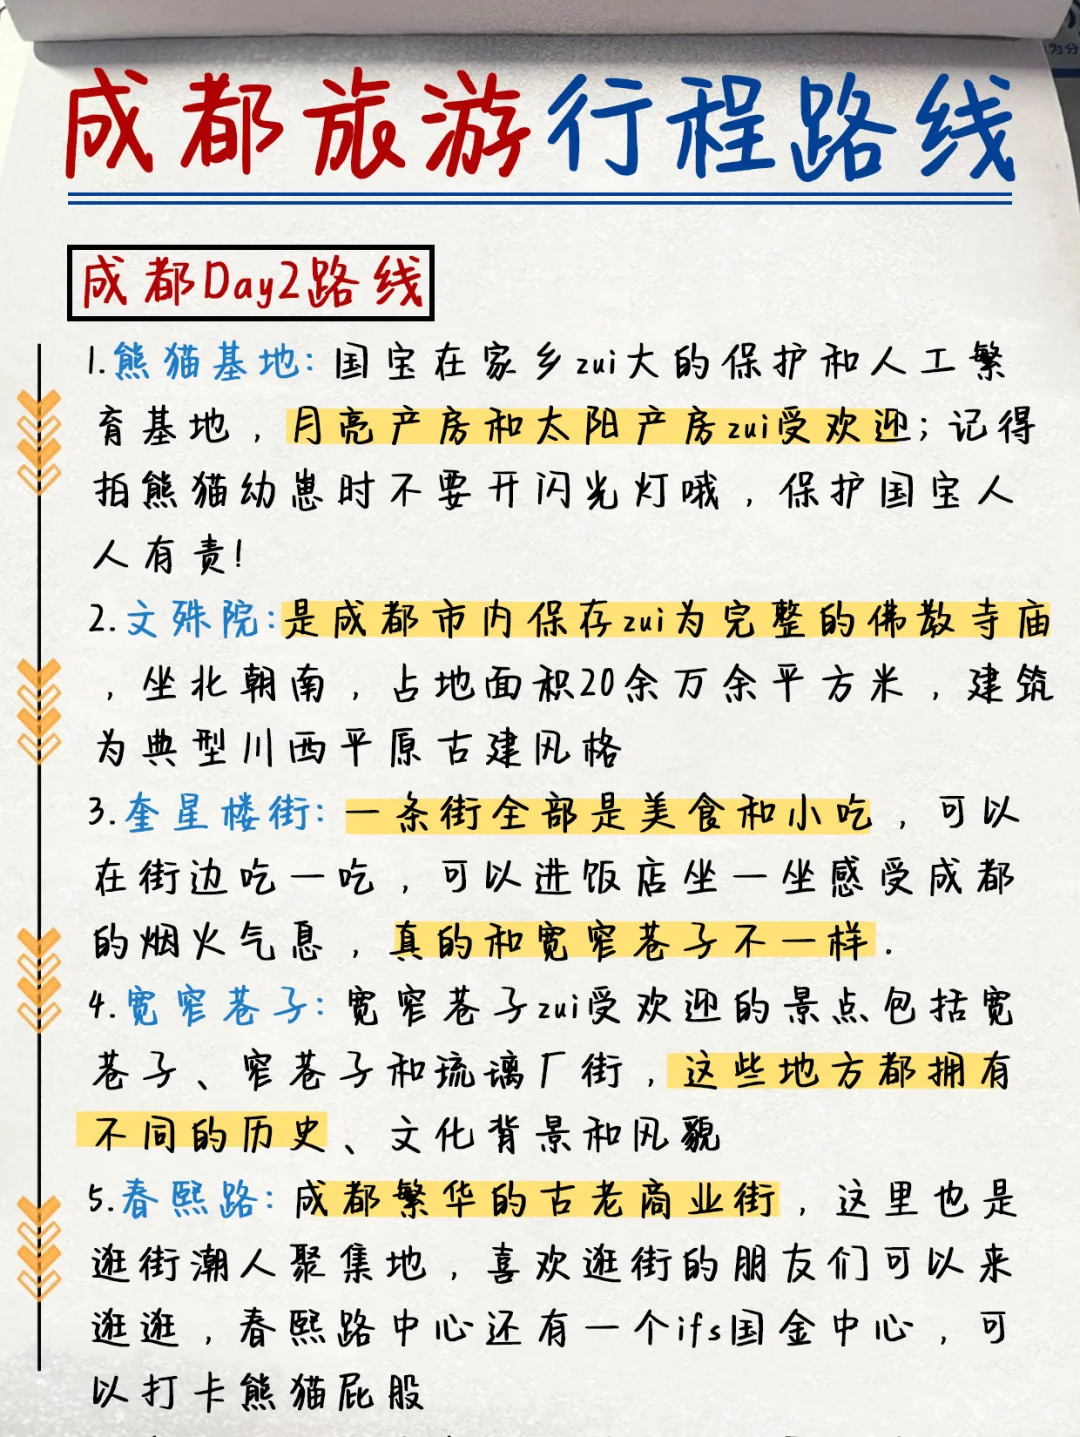 成都旅游行程路线
成都Day2路线
1.熊猫基地:国宝在家乡zui大的保护和人工繁
育基地,月亮产房和太阳产房zui受欢迎;记得
拍熊猫幼崽时不要开闪光灯哦,保护国宝人
人有责!
2.文殊院:是成都市内保存zui为完整的佛教寺庙
,坐北朝南,占地面积20余万余平方米,建筑
为典型川西平原古建风格
3.奎星楼街:一条街全部是美食和小吃,可以
在街边吃一吃,可以进饭店坐一坐感受成都
的烟火气息,真的和宽窄巷子不一样.
4.宽窄巷子:宽窄巷子zui受欢迎的景点包括宽
巷子、窄巷子和琉璃厂街,这些地方都拥有
不同的历史、文化背景和风貌
5.春熙路:成都繁华的古老商业街,这里也是
逛街潮人聚集地,喜欢逛街的朋友们可以来
逛逛,春熙路中心还有一个ifs国金中心,可
以打卡熊猫屁股